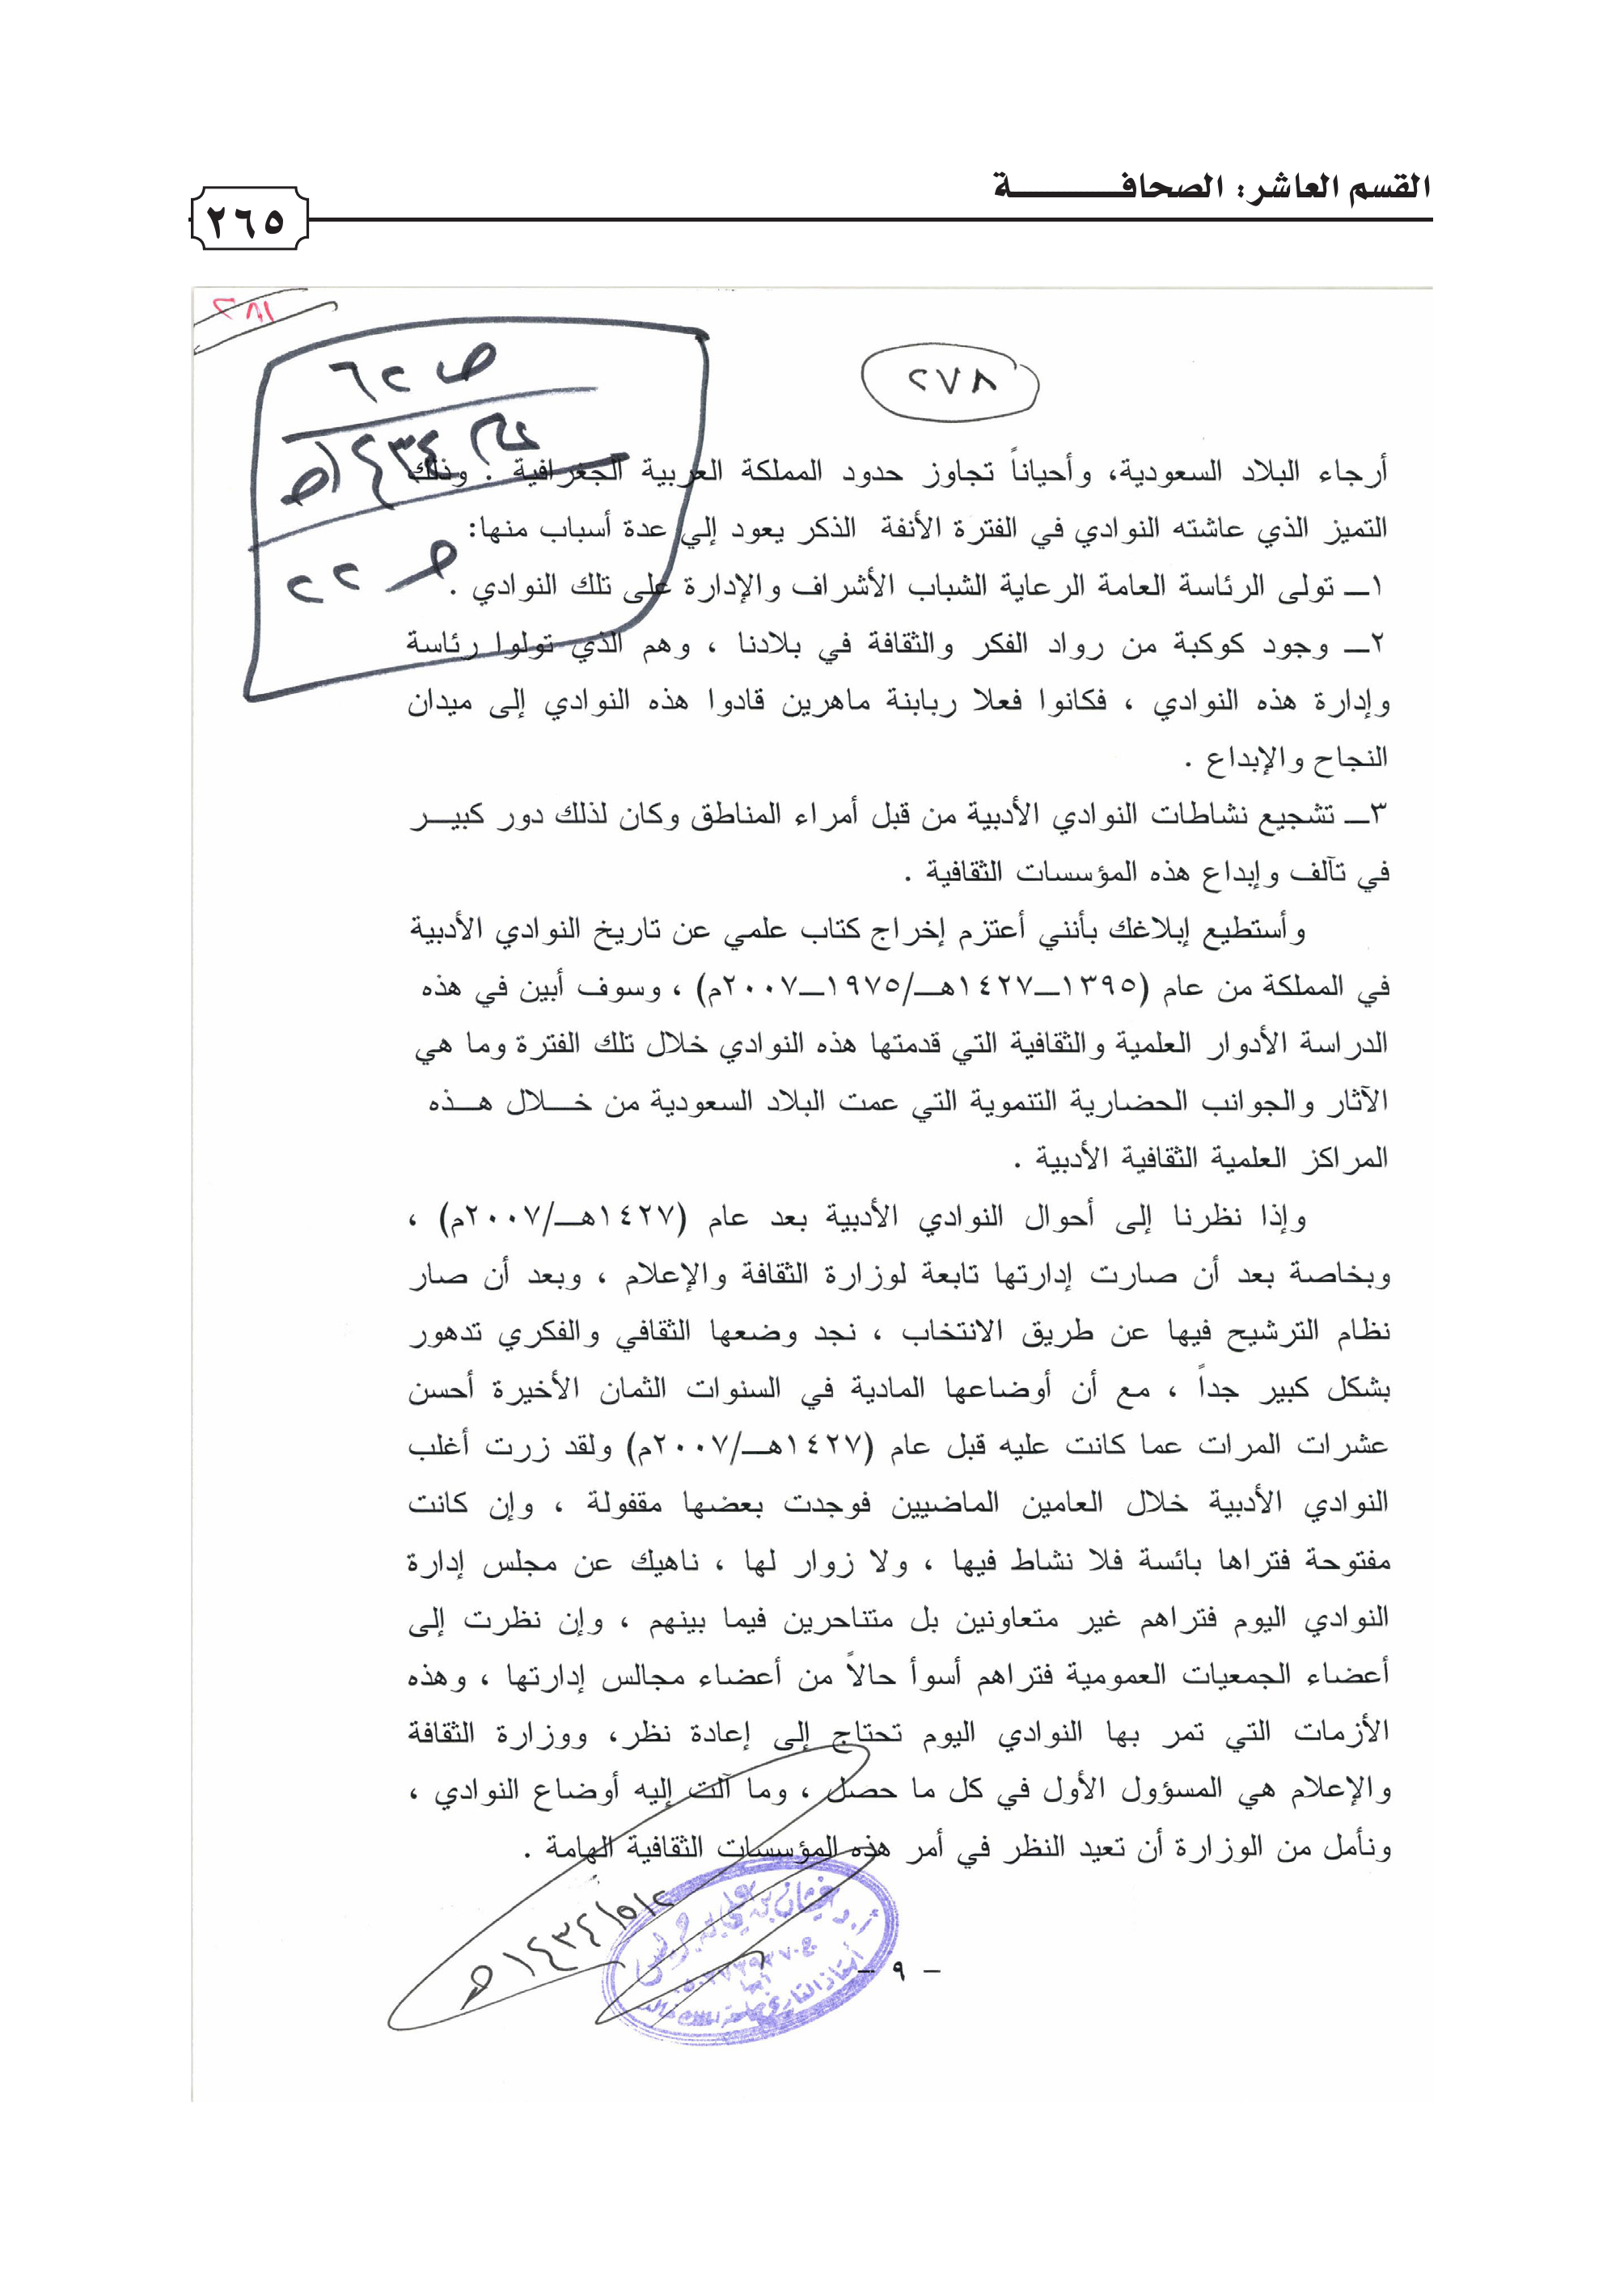 القسم العاشر: الصحافة
٢٦٥
٢٨١
٢٧٨
ص ٦٢
عام ١٤٣٤هـ
ص ٢٢
أرجاء البلاد السعودية، وأحياناً تجاوز حدود المملكة العربية الجغرافية . وذلك
التميز الذي عاشته النوادي في الفترة الأنفة الذكر يعود إلي عدة أسباب منها:
١ــ تولى الرئاسة العامة الرعاية الشباب الأشراف والإدارة على تلك النوادي .
٢ــ وجود كوكبة من رواد الفكر والثقافة في بلادنا ، وهم الذي تولوا رئاسة
وإدارة هذه النوادي ، فكانوا فعلا ربابنة ماهرين قادوا هذه النوادي إلى ميدان
النجاح والإبداع .
٣ــ تشجيع نشاطات النوادي الأدبية من قبل أمراء المناطق وكان لذلك دور كبيـــر
في تآلف وإبداع هذه المؤسسات الثقافية .
وأستطيع إبلاغك بأنني أعتزم إخراج كتاب علمي عن تاريخ النوادي الأدبية
في المملكة من عام (١٣٩٥ــ١٤٢٧هــ/١٩٧٥ــ٢٠٠٧م) ، وسوف أبين في هذه
الدراسة الأدوار العلمية والثقافية التي قدمتها هذه النوادي خلال تلك الفترة وما هي
الآثار والجوانب الحضارية التنموية التي عمت البلاد السعودية من خـــلال هـــذه
المراكز العلمية الثقافية الأدبية .
وإذا نظرنا إلى أحوال النوادي الأدبية بعد عام (١٤٢٧هــ/٢٠٠٧م) ،
وبخاصة بعد أن صارت إدارتها تابعة لوزارة الثقافة والإعلام ، وبعد أن صار
نظام الترشيح فيها عن طريق الانتخاب ، نجد وضعها الثقافي والفكري تدهور
بشكل كبير جداً ، مع أن أوضاعها المادية في السنوات الثمان الأخيرة أحسن
عشرات المرات عما كانت عليه قبل عام (١٤٢٧هــ/٢٠٠٧م) ولقد زرت أغلب
النوادي الأدبية خلال العامين الماضيين فوجدت بعضها مقفولة ، وإن كانت
مفتوحة فتراها بائسة فلا نشاط فيها ، ولا زوار لها ، ناهيك عن مجلس إدارة
النوادي اليوم فتراهم غير متعاونين بل متناحرين فيما بينهم ، وإن نظرت إلى
أعضاء الجمعيات العمومية فتراهم أسوأ حالاً من أعضاء مجالس إدارتها ، وهذه
الأزمات التي تمر بها النوادي اليوم تحتاج إلى إعادة نظر، ووزارة الثقافة
والإعلام هي المسؤول الأول في كل ما حصل ، وما آلت إليه أوضاع النوادي ،
ونأمل من الوزارة أن تعيد النظر في أمر هذه المؤسسات الثقافية الهامة .
١٤٣٤/٥/٢هـ
أ.د غيثان بن علي بن جريس
أبها
أستاذ التاريخ جامعة الملك خالد
– ٩ –